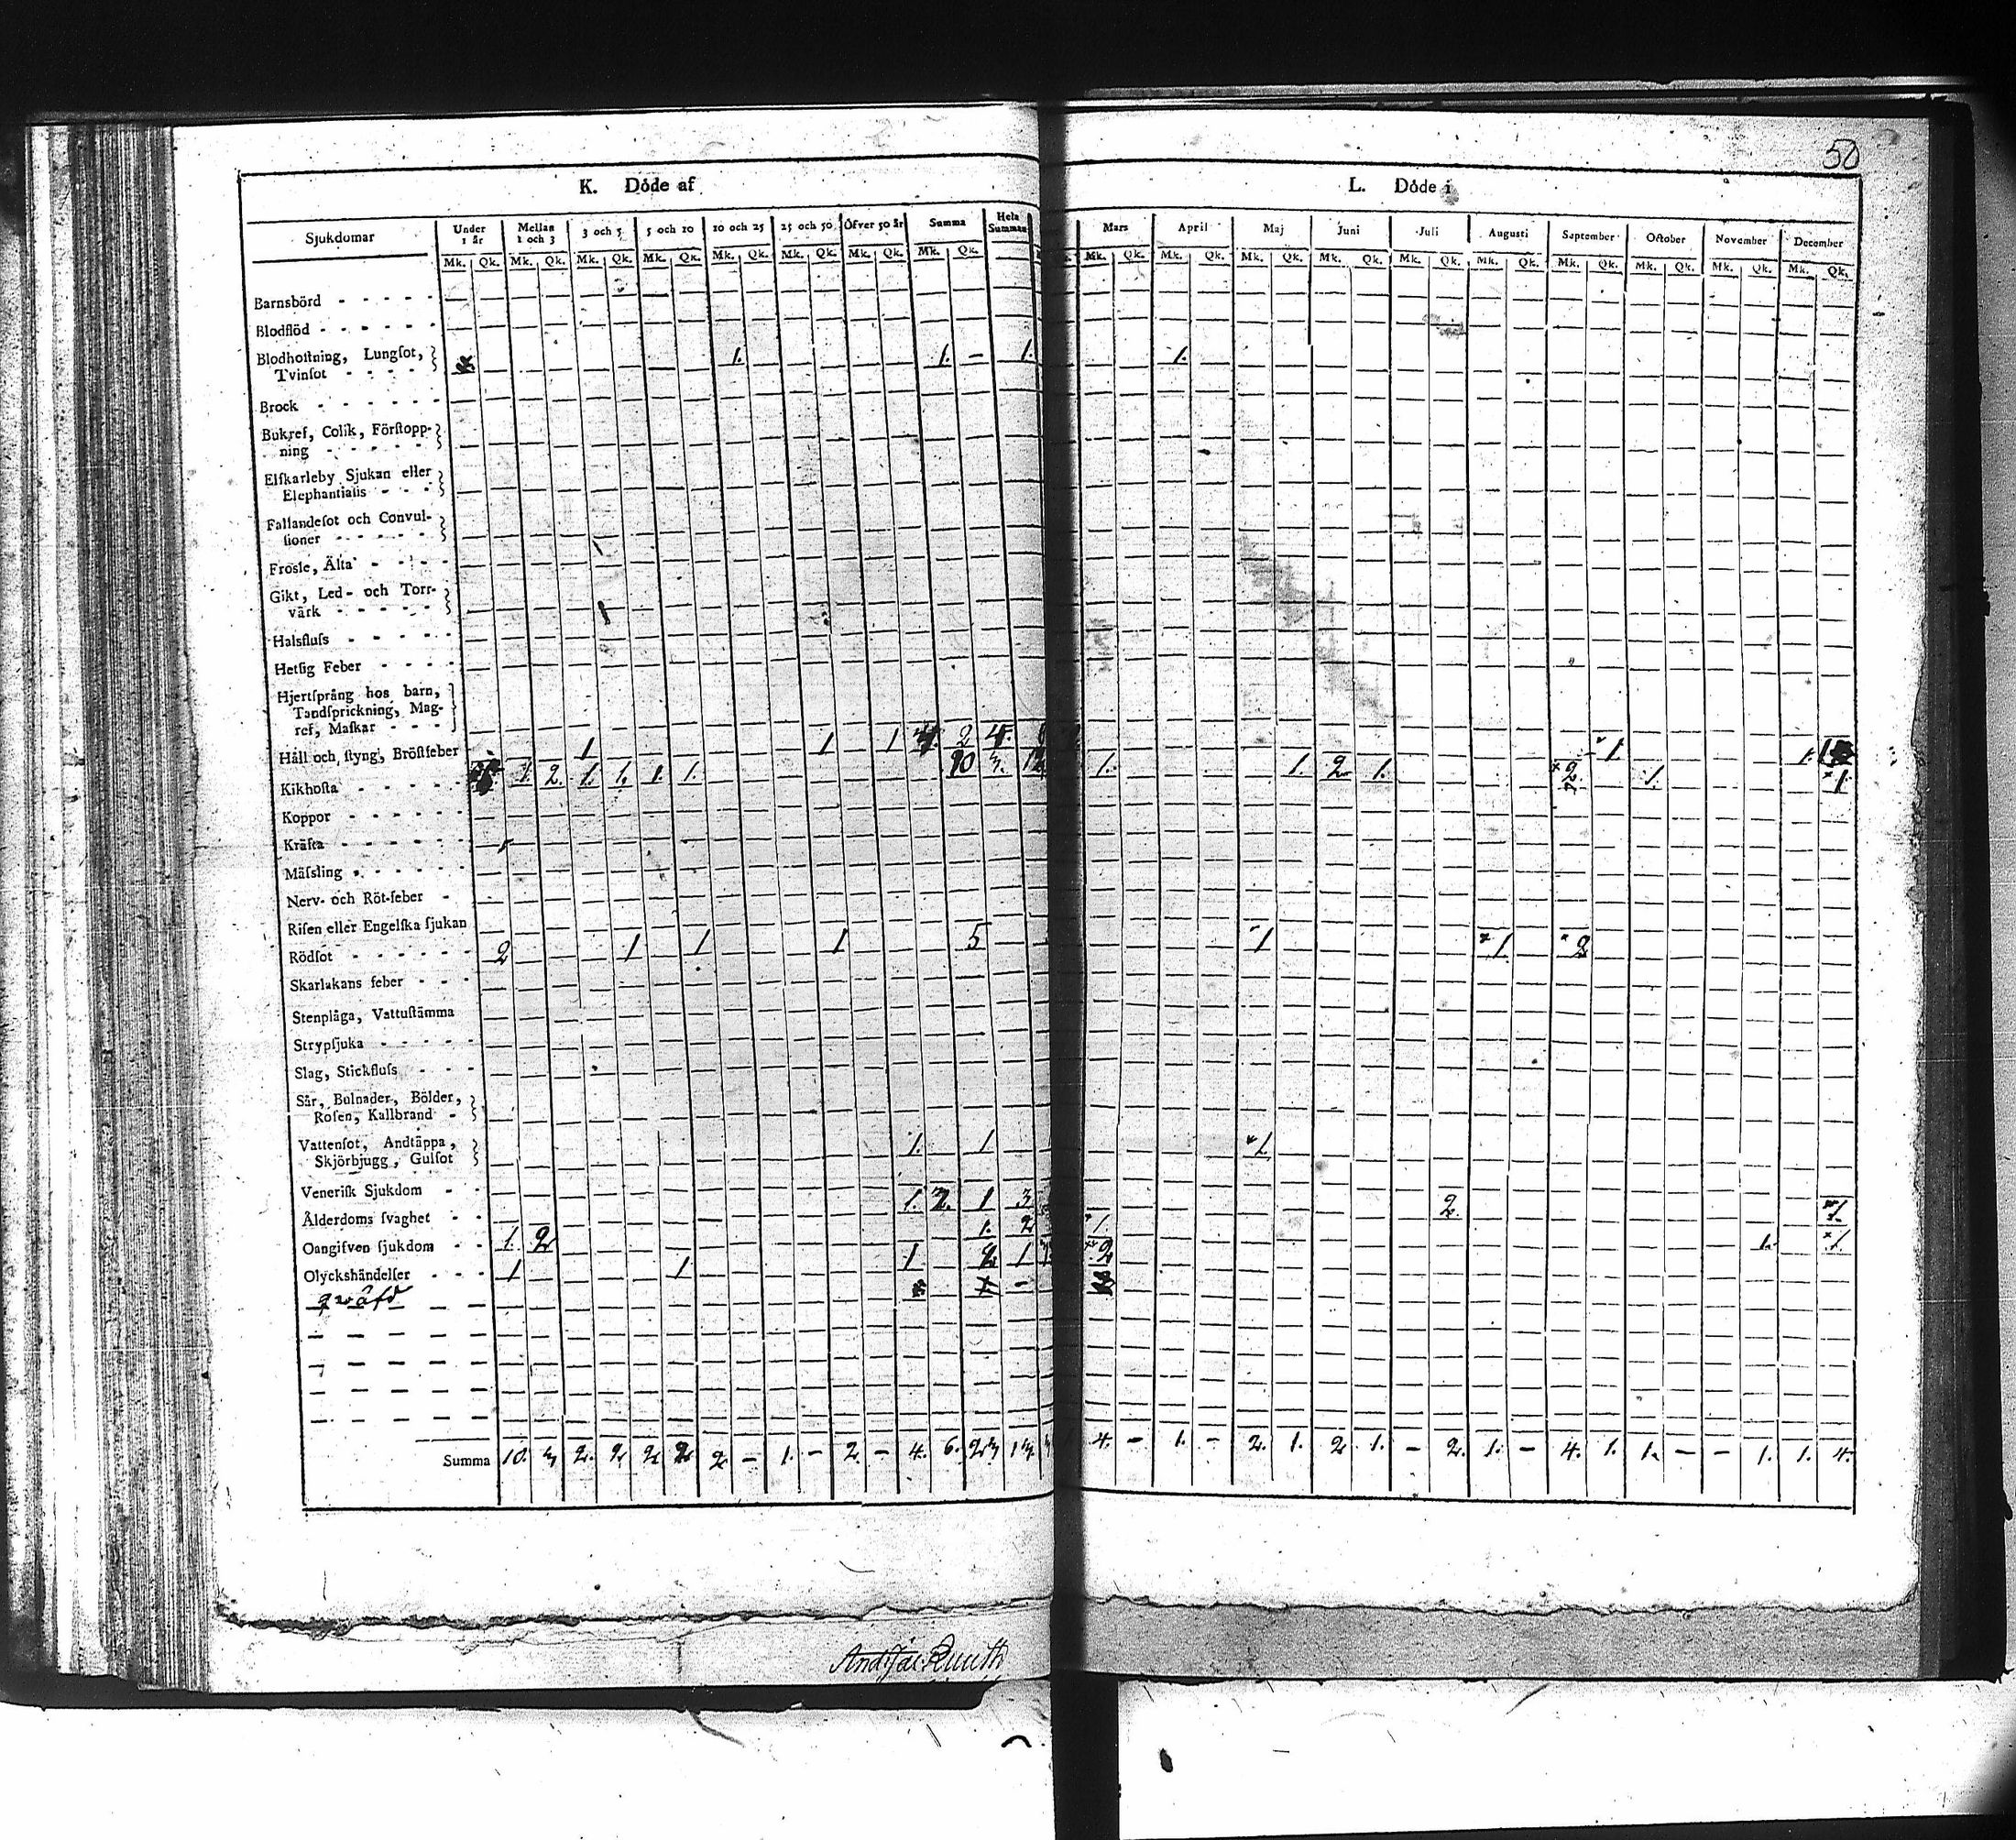 50
K. Döde af
L. Döde i
Sjukdomar Under 1 år Mellan 1 och 3 3 och 5 5 och 10 10 och 25 25 och 50 Öfver 50 år Summa Hela Summan Mars April Maj Juni Juli Augusti September October November December
Mk. Qk. Mk. Qk. Mk. Qk. Mk. Qk. Mk. Qk. Mk. Qk. Mk. Qk. Mk. Qk. Mk. Qk. Mk. Qk. Mk. Qk. Mk. Qk. Mk. Qk. Mk. Qk. Mk. Qk. Mk. Qk. Mk. Qk. Mk. Qk.
Barnsbörd
Blodflöd
Blodhostning, Lungſot, 1. 1. – 1. 1.
Tvinſot
Brock
Bukref, Colik, Förſtopp-
ning
Elfkarleby Sjukan eller
Elephantiaſis
Fallandeſot och Convul-
ſioner
Froſle, Älta
Gikt, Led- och Torr-
värk
Halsfluſs
Hetſig Feber
Hjertſprång hos barn,
Tandſprickning, Mag-
ref, Maſkar
Håll och ſtyng, Bröſtfeber 1 1 1 2 4. 1. 1.
Kikhoſta 1. 2. 1. 1. 1. 1. 10 3. 1. 1. 2. 1. 2. 1. 1
Koppor
Kräfta
Mäſsling
Nerv- och Röt-feber
Riſen eller Engelſka ſjukan
Rödſot 2 1 1 1 5 1 1. 2
Skarlakans feber
Stenplåga, Vattuſtämma
Strypſjuka
Slag, Stickfluſs
Sår, Bulnader, Bölder,
Roſen, Kallbrand
Vattenſot, Andtäppa, 1. 1 1.
Skjörbjugg, Gulſot
Veneriſk Sjukdom
Ålderdoms ſvaghet 1. 2. 1 3 2. 1
Oangifven ſjukdom 1. 2 1. 2 1. 1. 1.
Olyckshändelſer 1 1 1 2 1 2
qwäfd
Summa 10. 3 2. 2 2 2 2 – 1. – 2. – 4. 6. 23 13. 4. – 1. – 2. 1. 2 1. – 2. 1. – 4. 1. 1. – – 1. 1. 4.